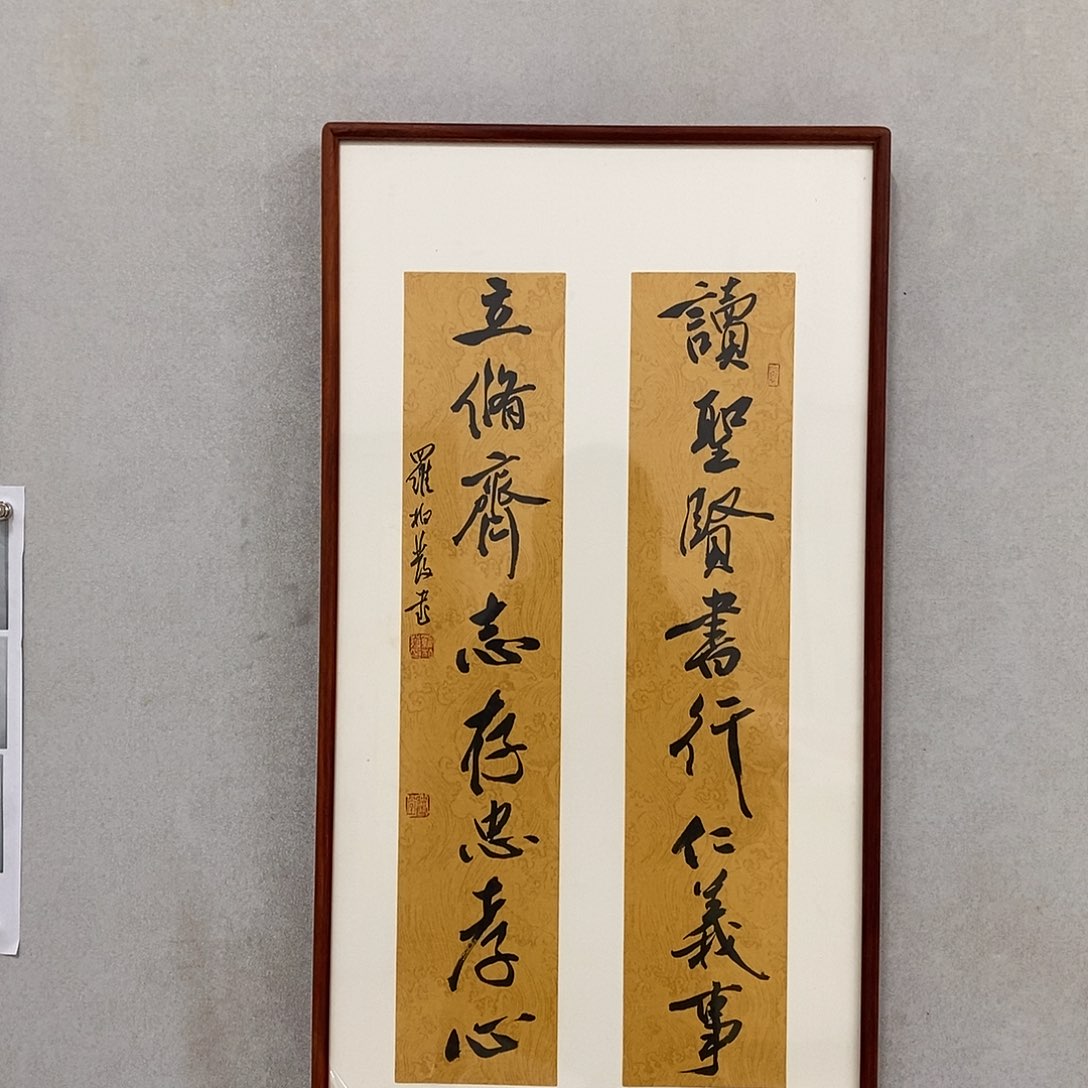 讀聖賢書行仁義事
立脩齊志存忠孝心
羅柏書